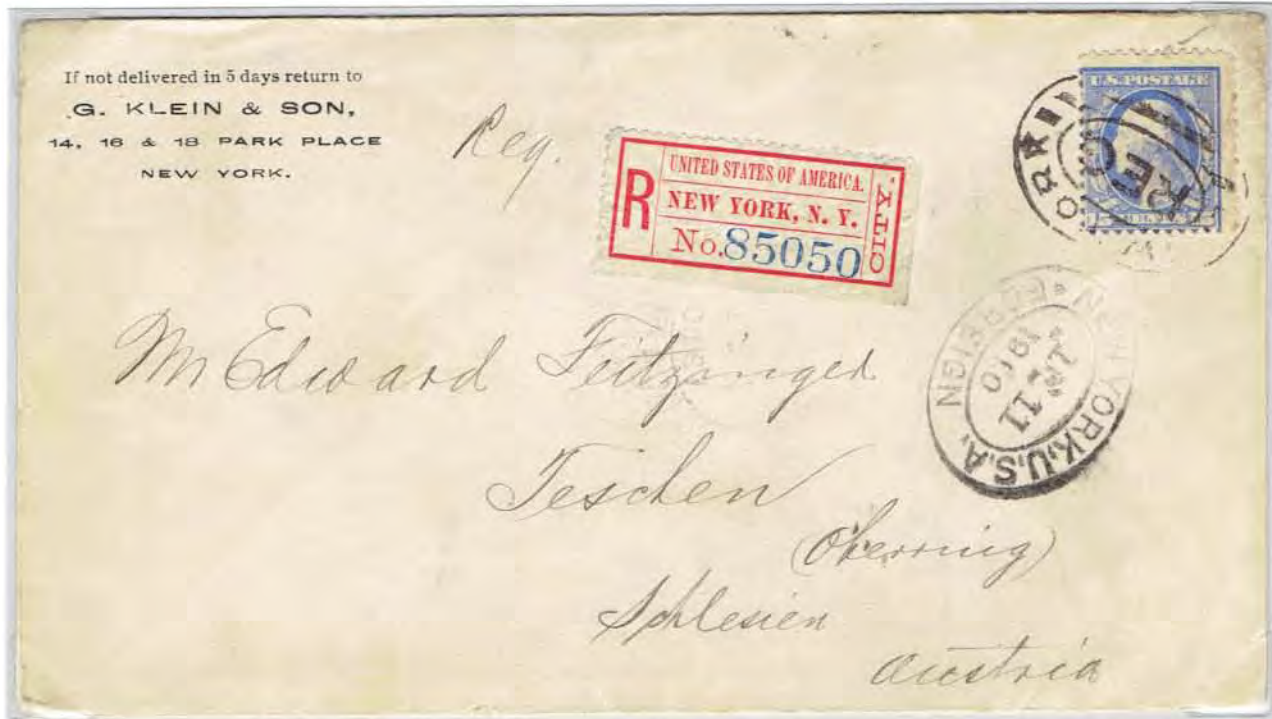 If not delivered in 5 days return to
G. KLEIN & SON,
14, 16 & 18 PARK PLACE
NEW YORK.
Reg.
R
UNITED STATES OF AMERICA.
NEW YORK, N. Y.
No. 85050
CITY.
U.S. POSTAGE
NEW YORK, U.S.A. FOREIGN
1-11
1910
Mr Edward Feitzinger
Teschen
(Oberring)
Schlesien
Austria